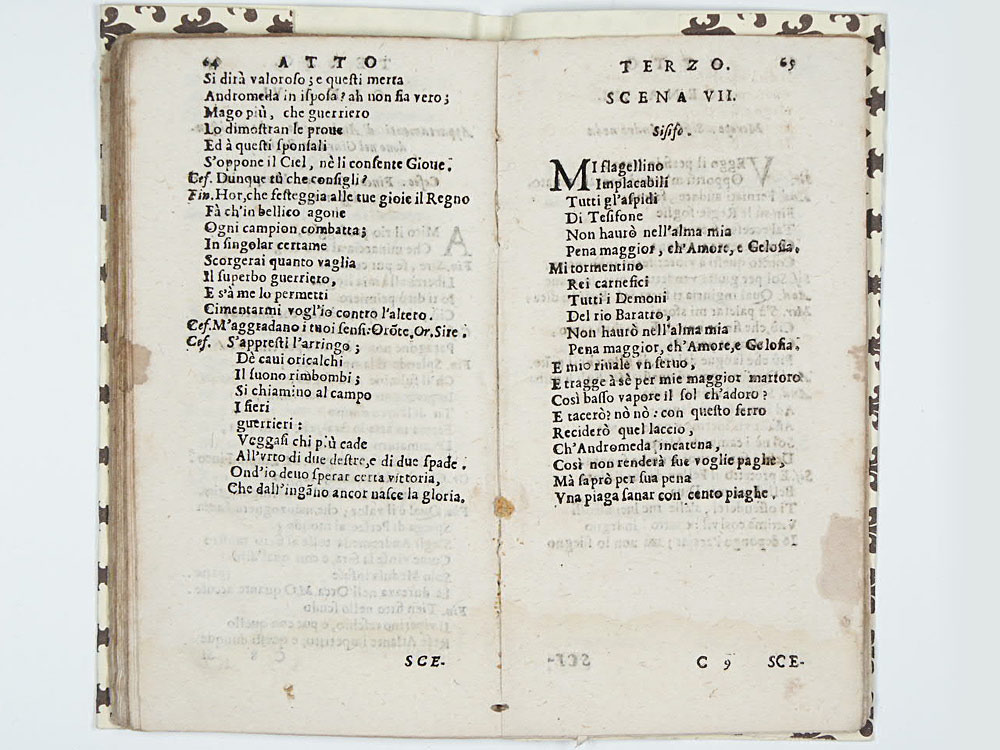 64 ATTO
Si dirà valoroso; e questi merta
Andromeda in isposa? ah non sia vero;
Mago più, che guerriero
Lo dimostran le proue
Ed à questi sponsali
S'oppone il Ciel, nè li consente Gioue.
Cef. Dunque tù che consigli?
Fin. Hor, che festeggia alle tue gioie il Regno
Fà ch'in bellico agone
Ogni campion combatta;
In singolar certame
Scorgerai quanto vaglia
Il superbo guerriero,
E s'à me lo permetti
Cimentarmi vogl'io contro l'altero.
Cef. M'aggradano i tuoi sensi: Orõte, Or. Sire.
Cef. S'appresti l'arringo;
Dè caui oricalchi
Il suono rimbombi;
Si chiamino al campo
I fieri
guerrieri:
Veggasi chi più cade
All'vrto di due destre, e di due spade.
Ond'io deuo sperar certa vittoria,
Che dall'ingãno ancor nasce la gloria.
SCE-
TERZO. 65
SCENA VII.
Sisifo.
MI flagellino
Implacabili
Tutti gl'aspidi
Di Tesifone
Non haurò nell'alma mia
Pena maggior, ch'Amore, e Gelosia.
Mi tormentino
Rei carnefici
Tutti i Demoni
Del rio Baratro,
Non haurò nell'alma mia
Pena maggior, ch'Amore, e Gelosia.
E mio riuale vn seruo,
E tragge à sè per mie maggior martoro
Così basso vapore il sol ch'adoro?
E tacerò? nò nò: con questo ferro
Reciderò quel laccio,
Ch'Andromeda incatena,
Così non renderà sue voglie paghe,
Mà saprò per sua pena
Vna piaga sanar con cento piaghe.
C 9 SCE-